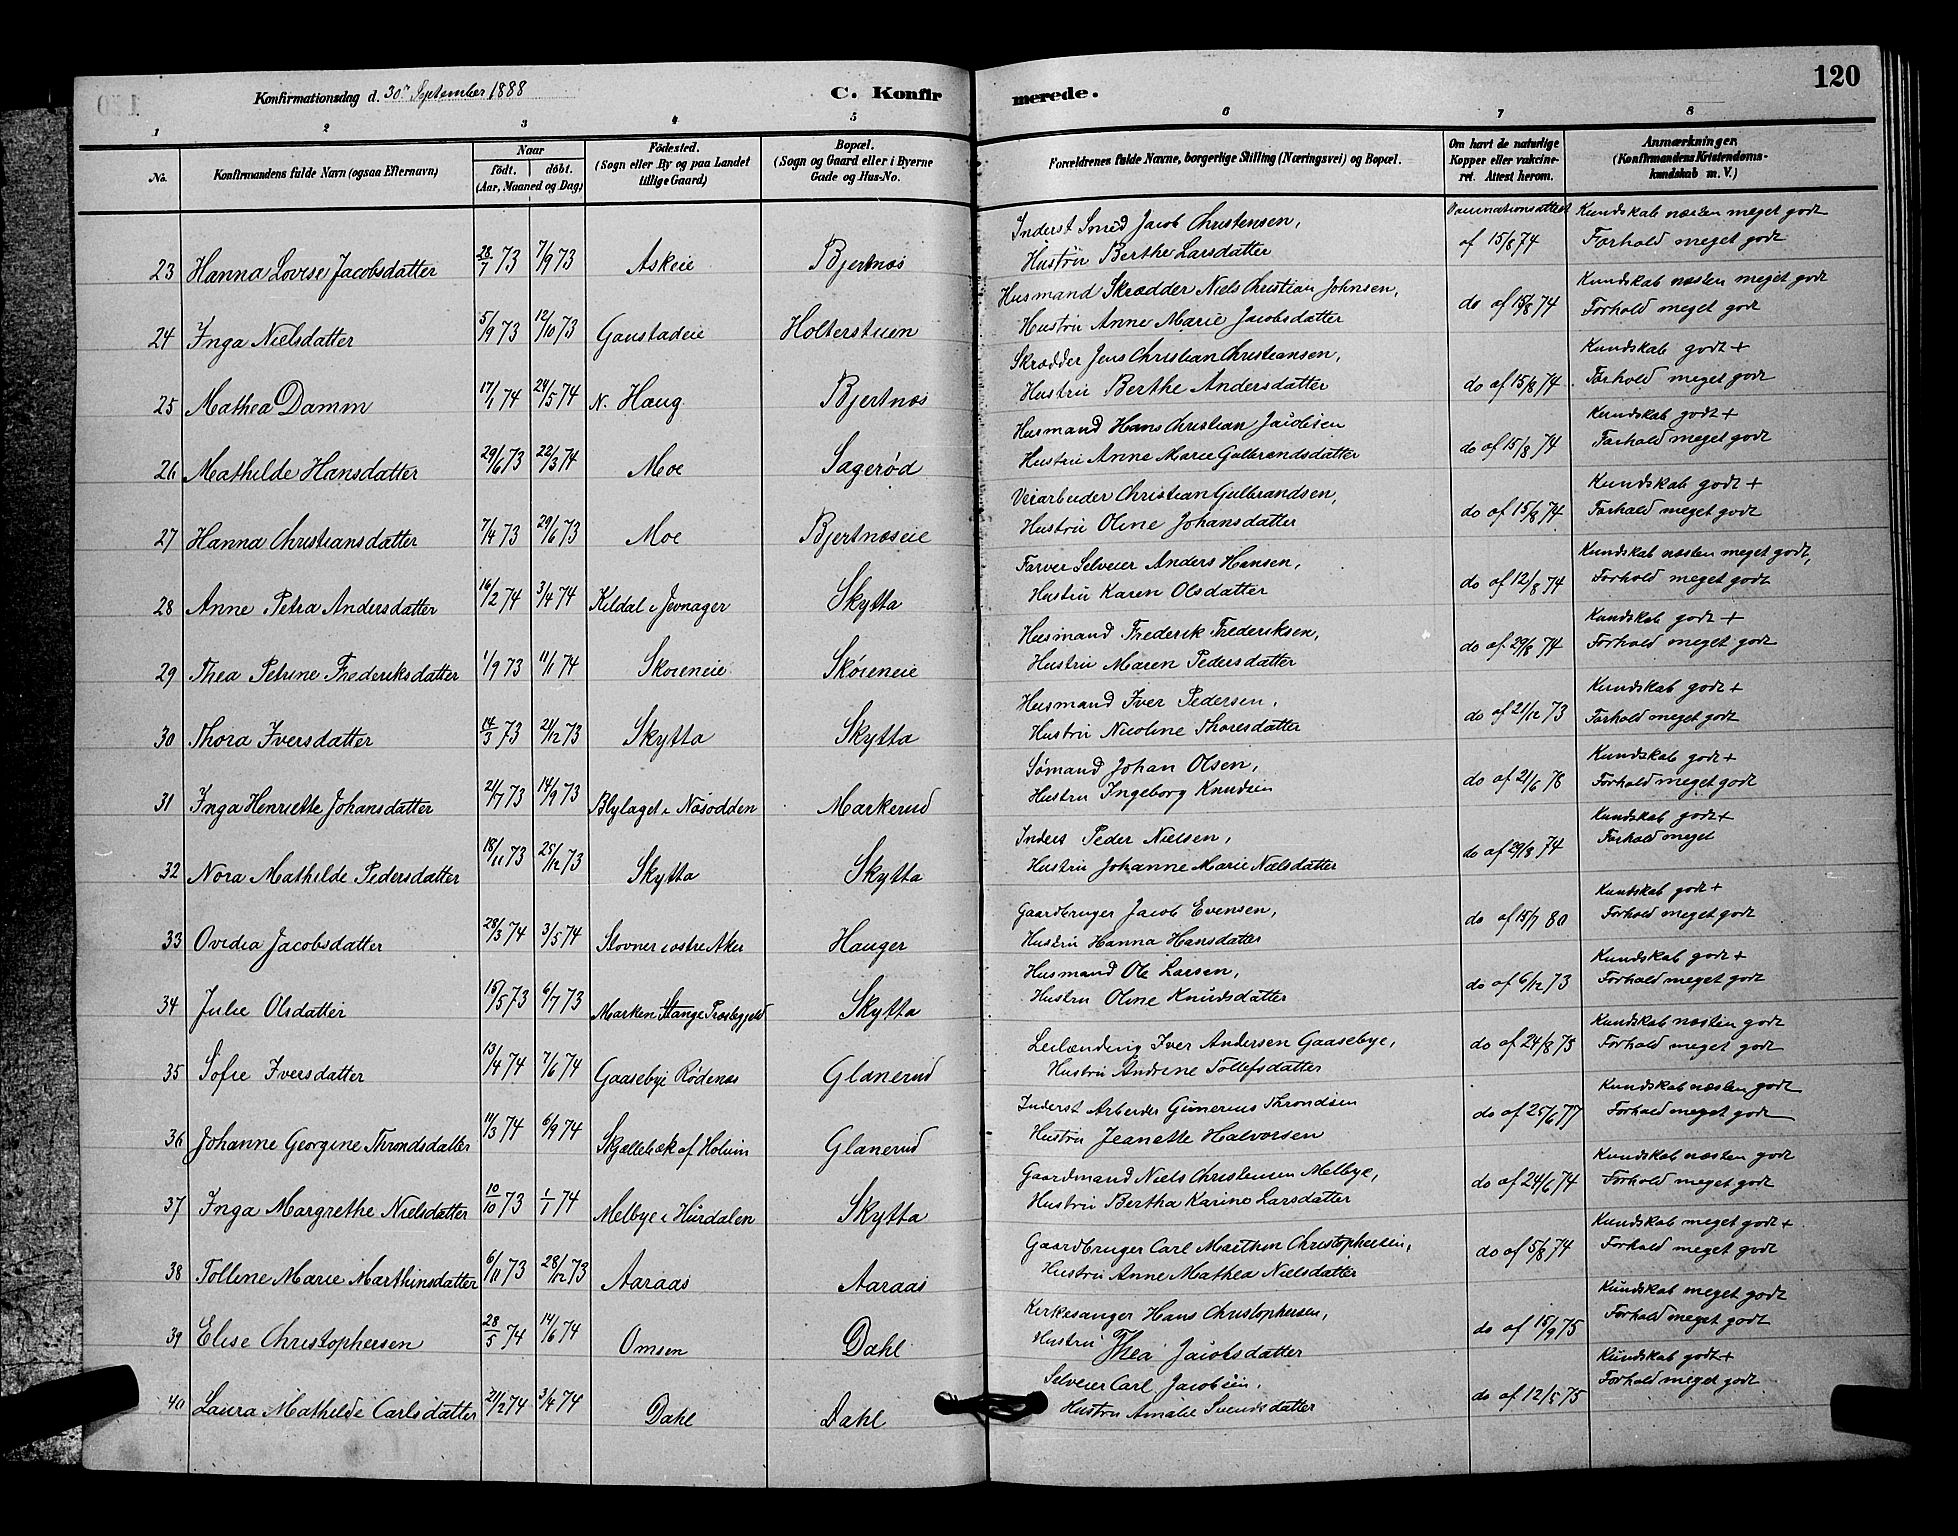 Konfirmationsdag d. 30' September 1888
C. Konfir merede.
120
1 2 3 4 5 6 7 8
No.
Konfirmandens fulde Navn (ogsaa Efternavn)
Naar
födt. döbt.
(Aar, Maaned og Dag)
Födested.
(Sogn eller By og paa Landet
tillige Gaard)
Bopæl.
(Sogn og Gaard eller i Byerne
Gade og Hus-No.
Forældrenes fulde Navne, borgerlige Stilling (Næringsvei) og Bopæl.
Om havt de naturlige
Kopper eller vakcine-
ret. Attest herom.
Anmærkninger.
(Konfirmandens Kristendoms-
kundskab m. V.)
Inderst Smed Jacob Christensen, Vaccinationsattest Kundskab næsten meget godt
23 Hanna Lovise Jacobsdatter 28/7 73 7/9 73 Askeie Bjertnæs Hustru Berthe Larsdatter af 15/8 74 Forhold meget godt
Husmand Skrædder Niels Christian Johnsen, Kundskab næsten meget godt
24 Inga Nielsdatter 5/9 73 12/10 73 Gaustadeie Holterstuen Hustru Anne Marie Jacobsdatter do af 15/8 74 Forhold meget godt
Skrædder Jens Christian Christiansen, Kundskab godt +
25 Mathea Damm 17/1 74 24/5 74 N. Haug Bjertnæs Hustru Berthe Andersdatter do af 15/8 74 Forhold meget godt
Husmand Hans Christian Jacobsen Kundskab godt +
26 Mathilde Hansdatter 29/6 73 22/3 74 Moe Sagerød Hustru Anne Marie Gulbrandsdatter do af 15/8 74 Forhold meget godt
Veiarbeider Christian Gulbrandsen, Kundskab godt +
27 Hanna Christiansdatter 7/4 73 29/6 73 Moe Bjertnæseie Hustru Oline Johansdatter do af 15/8 74 Forhold meget godt
Farver Selveier Anders Hansen, Kundskab næsten meget godt,
28 Anne Petra Andersdatter 16/2 74 3/4 74 Kildal i Jevnager Skytta Hustru Karen Olsdatter do af 12/8 74 Forhold meget godt
Husmand Frederik Frederiksen, Kundskab godt +
29 Thea Petrine Frederiksdatter 1/9 73 11/1 74 Skøieneie Skøieneie Hustru Maren Pedersdatter do af 29/8 74 Forhold meget godt
Husmand Iver Pedersen, Kundskab godt +
30 Thora Iversdatter 14/3 73 21/12 73 Skytta Skytta Hustru Nicoline Thoresdatter do af 21/12 73 Forhold meget godt
Sømand Johan Olsen, Kundskab godt +
31 Inga Henriette Johansdatter 21/7 73 14/9 73 Blylaget i Næsodden Markerud Hustru Ingeborg Knudsen do af 21/6 78 Forhold meget godt
Inderst Peder Nielsen, Kundskab godt +
32 Nora Mathilde Pedersdatter 18/11 73 25/12 73 Skytta Skytta Hustru Johanne Marie Nielsdatter do af 29/8 74 Forhold meget
Gaardbruger Jacob Evensen, Kundskab godt +
33 Ovidia Jacobsdatter 28/3 74 3/5 74 Stovner i østre Aker Hauger Hustru Hanna Hansdatter do af 15/7 80 Forhold meget godt
Husmand Ole Larsen, Kundskab godt +
34 Julie Olsdatter 15/5 73 6/7 73 Marken Stange Præstegjeld Skytta Hustru Oline Knudsdatter do af 6/12 73 Forhold meget godt
Leilænding Iver Andersen Gaasebye, Kundskab næsten godt
35 Sofie Iversdatter 13/4 74 7/6 74 Gaasebye Rødenæs Glanerud Hustru Andrine Tollefsdatter do af 24/8 75 Forhold meget godt
Inderst Arbeider Gunerius Throndsen Kundskab næsten godt
36 Johanne Georgine Throndsdatter 11/3 74 6/9 74 Skjellebæk af Holum Glanerud Hustru Jeanette Halvorsen do af 25/6 77 Forhold meget godt
Gaardmand Niels Christensen Melbye, Kundskab næsten godt
37 Inga Margrethe Nielsdatter 10/10 73 1/1 74 Melbye i Hurdalen Skytta Hustru Bertha Karine Larsdatter do af 24/6 74 Forhold meget godt
Gaardbruger Carl Marthin Christophersen, Kundskab meget godt +
38 Tolline Marie Marthinsdatter 6/11 73 28/12 73 Aaraas Aaraas Hustru Anne Mathea Nielsdatter do af 5/8 74 Forhold meget godt
Kirkesanger Hans Christophersen, Kundskab meget godt
39 Elise Christophersen 28/5 74 14/6 74 Omsen Dahl Hustru Thea Jacobsdatter do af 15/9 75 Forhold meget godt
Selveier Carl Jacobsen, Kundskab godt +
40 Laura Mathilde Carlsdatter 21/2 74 3/4 74 Dahl Dahl Hustru Amalie Svendsdatter do af 12/8 75 Forhold meget godt